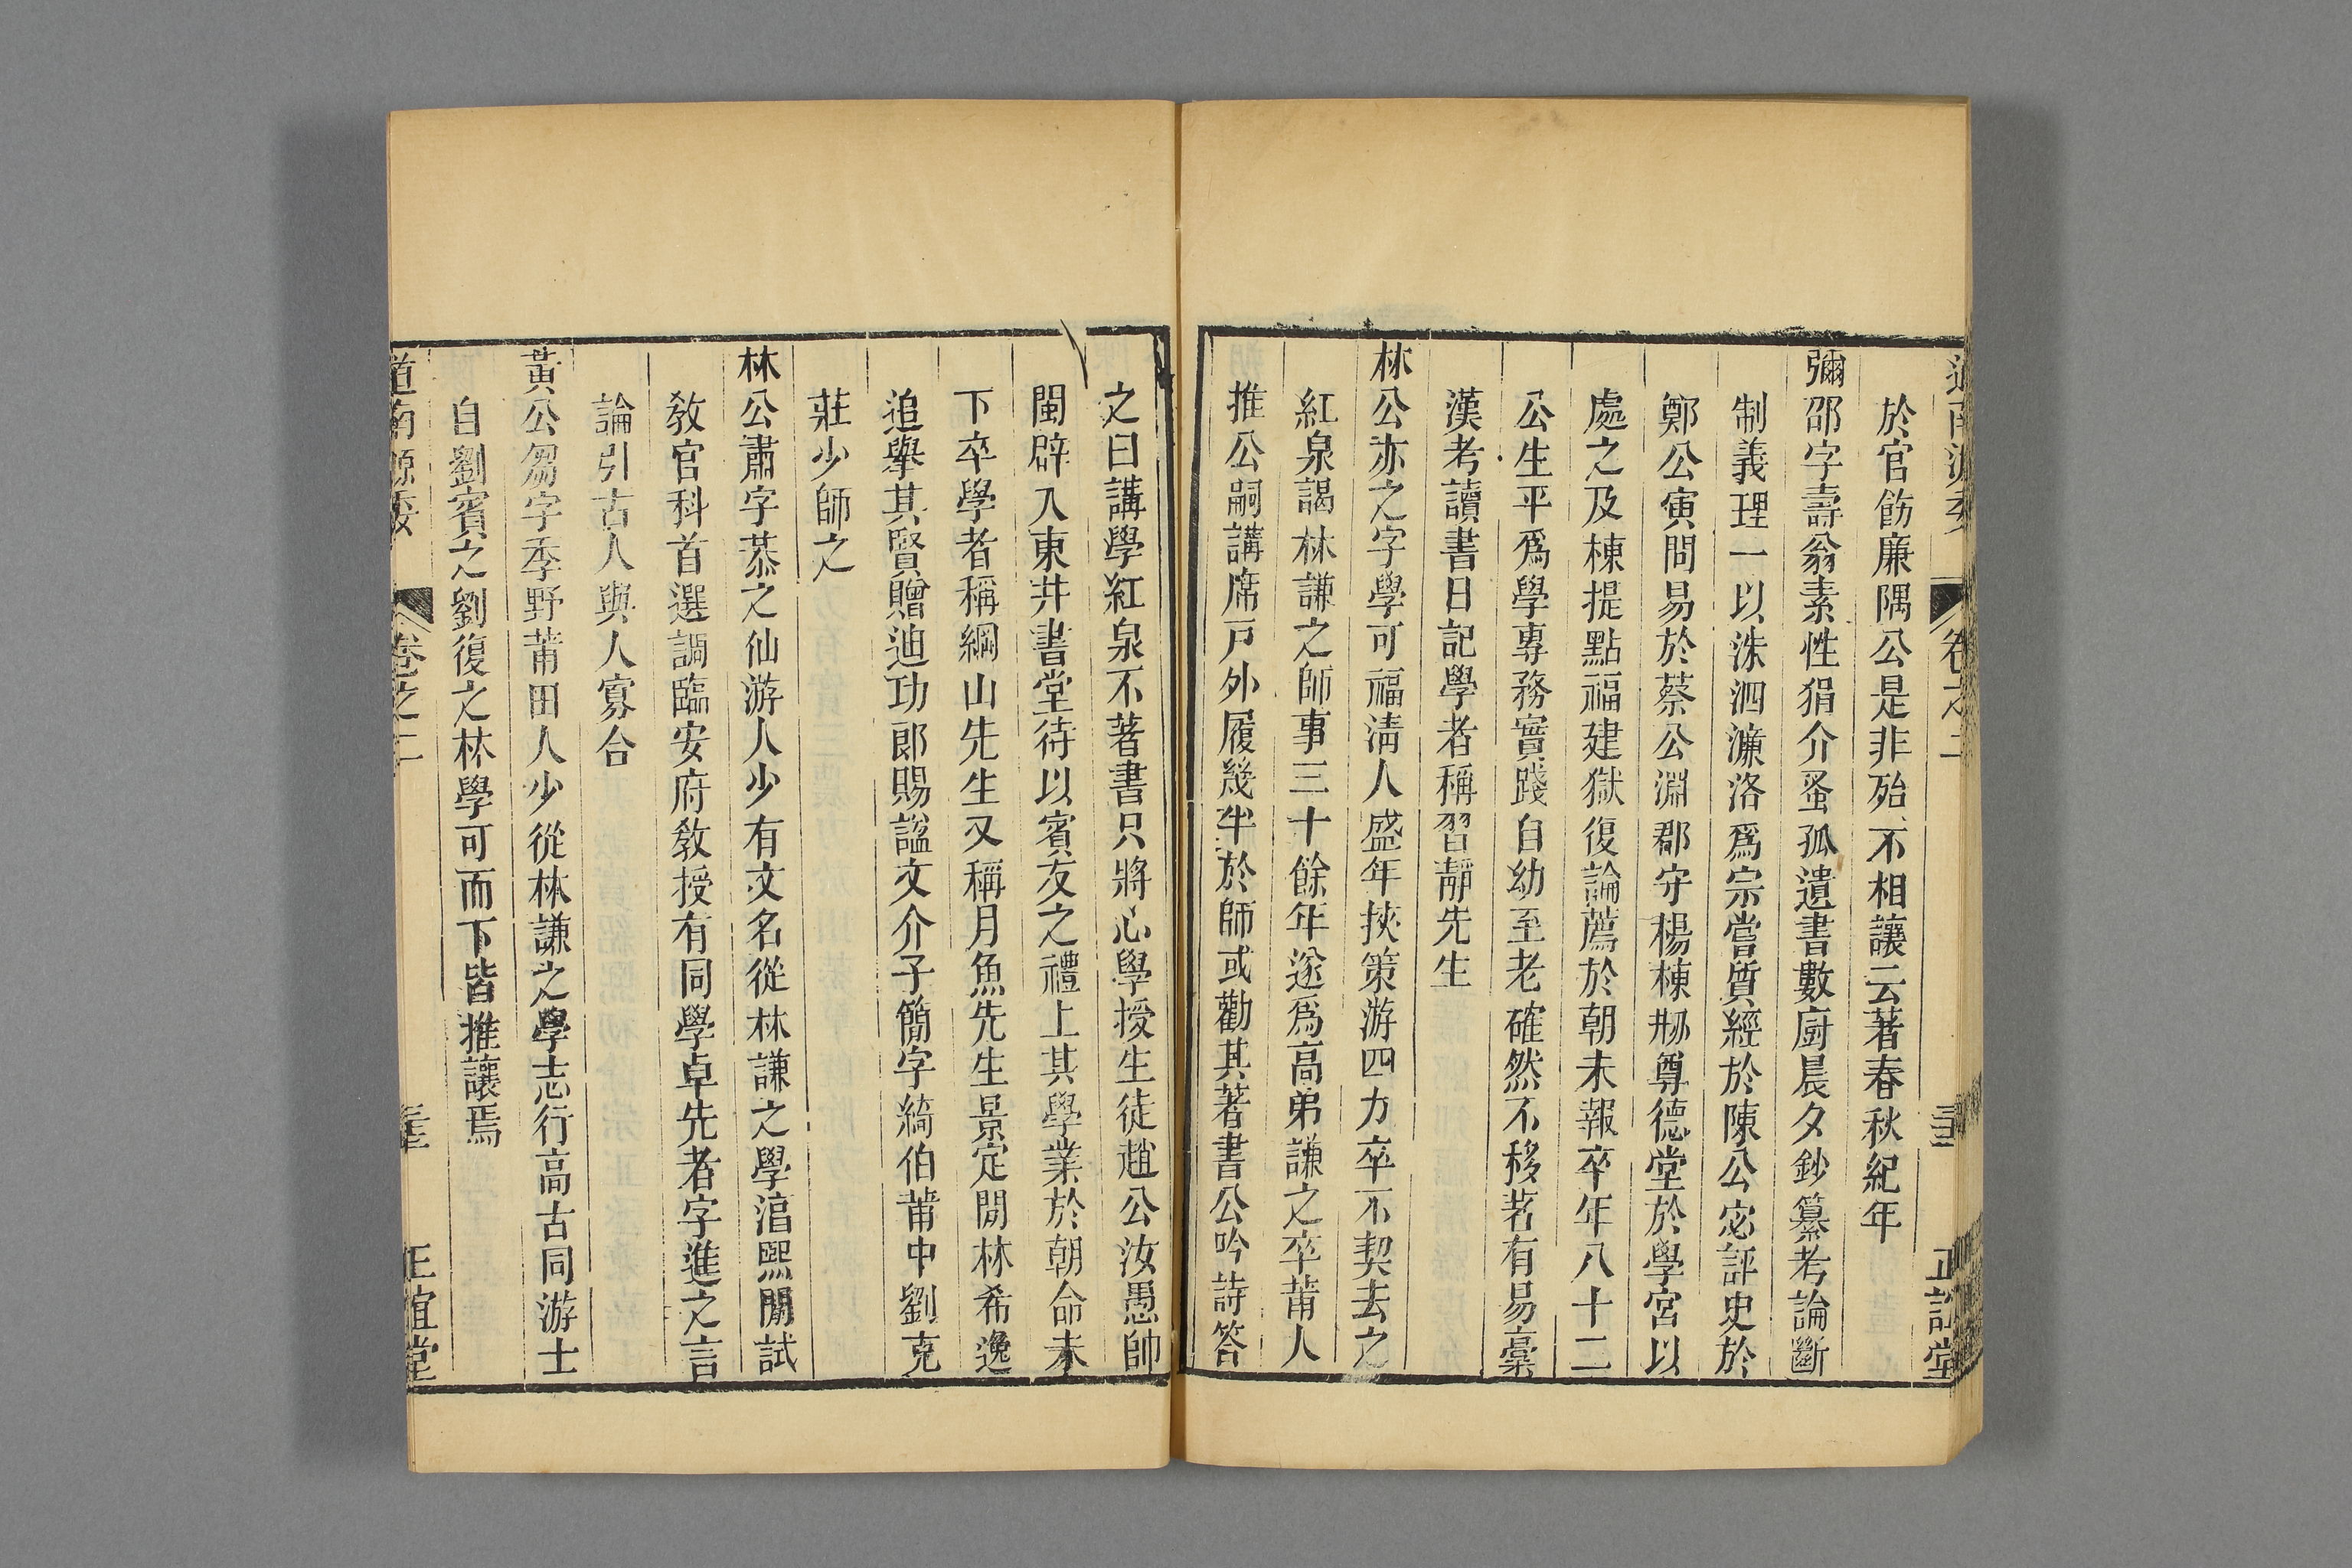 於官飭廉隅公是非殆不相讓云著春秋紀年
彌邵字壽翁素性狷介蚤孤遺書數廚晨夕鈔纂考論斷
制義理一以洙泗濂洛爲宗嘗質經於陳公宓評史於
鄭公寅問易於蔡公淵郡守楊棟剏尊德堂於學宮以
處之及棟提點福建獄復論薦於朝未報卒年八十二
公生平爲學專務實踐自幼至老確然不移茗有易稾
漢考讀書日記學者稱習靜先生
林公亦之字學可福淸人盛年挾策游四方卒不契去之
紅泉謁林謙之師事三十餘年遂爲高弟謙之卒莆人
推公嗣講席戸外履幾半於師或勸其著書公吟詩答
之曰講學紅泉不著書只將心學授生徒趙公汝愚帥
閩辟入東井書堂待以賓友之禮上其學業於朝命未
下卒學者稱網山先生又稱月魚先生景定閒林希逸
追擧其賢贈迪功郎賜諡文介子簡字綺伯莆中劉克
莊少師之
林公肅字恭之仙游人少有文名從林謙之學淳熙閒試
敎官科首選調臨安府敎授有同學卓先者字進之言
論引古人與人寡合
黃公芻字季野莆田人少從林謙之學志行高古同游士
自劉賓之劉復之林學可而下皆推讓焉
道南源委
卷之二
正誼堂